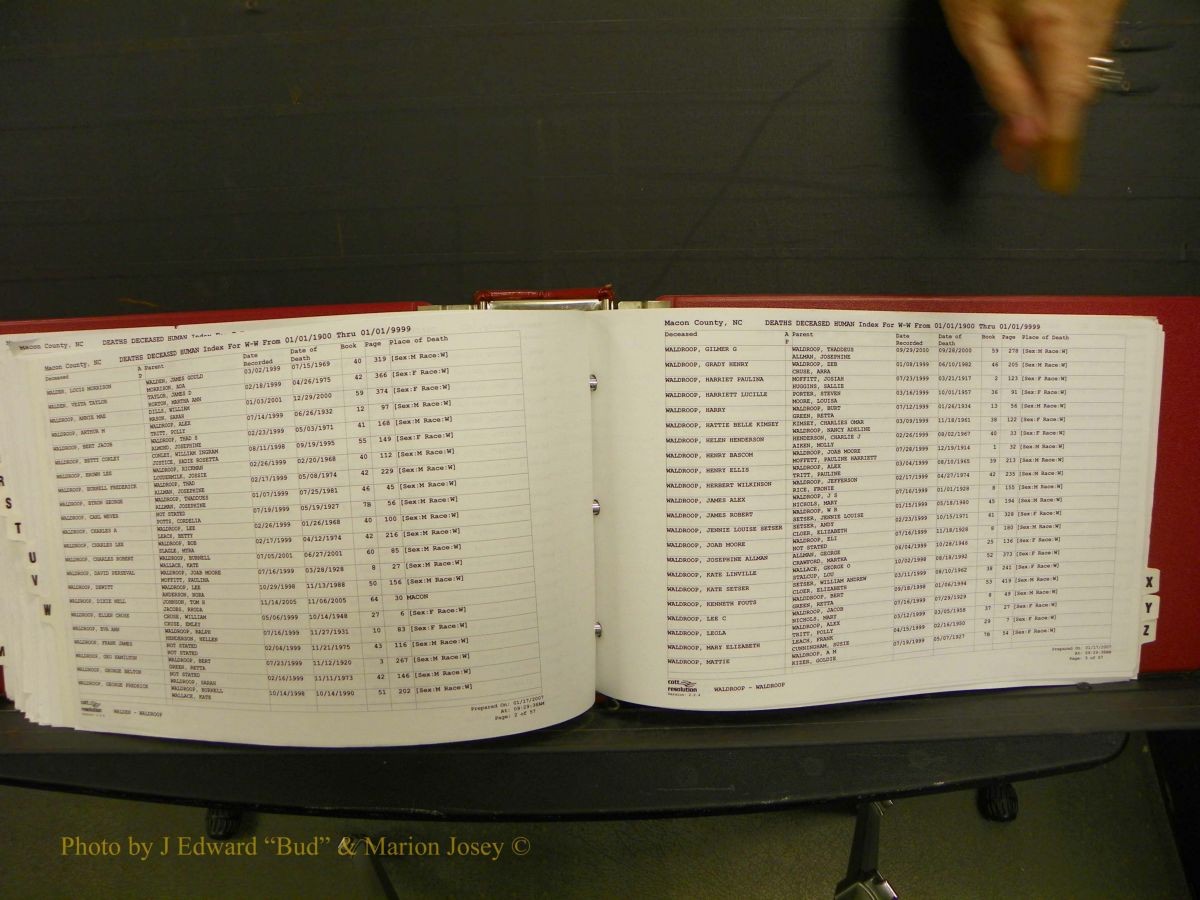 Macon County, NC DEATHS DECEASED HUMAN Index
Macon County, NC DEATHS DECEASED HUMAN Index For W-W From 01/01/1900 Thru 01/01/9999
Deceased A P Parent Date Recorded Date of Death Book Page Place of Death
WALDEN, LOUIS MORRISON WALDEN, JAMES GOULD 03/02/1999 07/15/1969 40 319 [Sex:M Race:W]
MORRISON, ADA
WALDEN, VESTA TAYLOR TAYLOR, JAMES D 02/18/1999 04/26/1975 42 366 [Sex:F Race:W]
NORTON, MARTHA ANN
WALDROOP, ANNIE MAE DILLS, WILLIAM 01/03/2001 12/29/2000 59 374 [Sex:F Race:W]
MASON, SARAH
WALDROOP, ARTHUR M WALDROOP, ALEX 07/14/1999 06/26/1932 12 97 [Sex:M Race:W]
TRITT, POLLY
WALDROOP, BERT JACOB WALDROOP, THAD S 02/23/1999 05/03/1971 41 168 [Sex:M Race:W]
ALMOND, JOSEPHINE
WALDROOP, BETTY CORLEY CONLEY, WILLIAM INGRAM 08/11/1998 09/19/1995 55 149 [Sex:F Race:W]
JUSTICE, SADIE ROSETTA
WALDROOP, BROWN LEE WALDROOP, HICKMAN 02/26/1999 02/20/1968 40 112 [Sex:M Race:W]
LOUDERMILK, JOSSIE
WALDROOP, BURRELL FREDERICK WALDROOP, THAD 02/17/1999 05/08/1974 42 229 [Sex:M Race:W]
ALLMAN, JOSEPHINE
WALDROOP, BYRON GEORGE WALDROOP, THADDUES 01/07/1999 07/25/1981 46 45 [Sex:M Race:W]
ALLMAN, JOSEPHINE
WALDROOP, CARL MEYER NOT STATED 07/19/1999 05/19/1927 7B 56 [Sex:M Race:W]
POTTS, CORDELIA
WALDROOP, CHARLES A WALDROOP, LEE 02/26/1999 01/26/1968 40 100 [Sex:M Race:W]
LEACH, BETTY
WALDROOP, CHARLES LEE WALDROOP, BOB 02/17/1999 04/12/1974 42 216 [Sex:M Race:W]
SLAGLE, MYRA
WALDROOP, CHARLES ROBERT WALDROOP, BURNELL 07/05/2001 06/27/2001 60 85 [Sex:M Race:W]
WALLACE, KATE
WALDROOP, DAVID PERCEVAL WALDROOP, JOAB MOORE 07/16/1999 03/28/1928 8 27 [Sex:M Race:W]
MOFFITT, PAULINA
WALDROOP, DEWITT WALDROOP, LEE 10/29/1998 11/13/1988 50 156 [Sex:M Race:W]
ANDERSON, NORA
WALDROOP, DIXIE WELL JOHNSON, TOM H 11/14/2005 11/06/2005 64 30 MACON
JACOBS, RHODA
WALDROOP, ELLEN CRUSE CRUSE, WILLIAM 05/06/1999 10/14/1948 27 6 [Sex:F Race:W]
CRUSE, EMLEY
WALDROOP, EVA ANN WALDROOP, RALPH 07/16/1999 11/27/1931 10 83 [Sex:F Race:W]
HENDERSON, HELLEN
WALDROOP, FRANK JAMES NOT STATED 02/04/1999 11/21/1975 43 116 [Sex:M Race:W]
NOT STATED
WALDROOP, GEO HAMILTON WALDROOP, BERT 07/23/1999 11/12/1920 3 267 [Sex:M Race:W]
GREEN, RETTA
WALDROOP, GEORGE BELTON NOT STATED 02/16/1999 11/11/1973 42 146 [Sex:M Race:W]
WALDROOP, SARAH
WALDROOP, GEORGE FREDRICK WALDROOP, BURRELL 10/14/1998 10/14/1990 51 202 [Sex:M Race:W]
WALLACE, KATE
cott resolution
WALDEN - WALDROOP
Prepared On: 01/17/2007
At: 09:29:36AM
Page: 2 of 57
Macon County, NC DEATHS DECEASED HUMAN Index For W-W From 01/01/1900 Thru 01/01/9999
Deceased A P Parent Date Recorded Date of Death Book Page Place of Death
WALDROOP, GILMER G WALDROOP, THADDEUS 09/29/2000 09/28/2000 59 278 [Sex:M Race:W]
ALLMAN, JOSEPHINE
WALDROOP, GRADY HENRY WALDROOP, ZEB 01/08/1999 06/10/1982 46 205 [Sex:M Race:W]
CRUSE, ARRA
WALDROOP, HARRIET PAULINA MOFFITT, JOSIAH 07/23/1999 03/21/1917 2 123 [Sex:F Race:W]
HUGGINS, SALLIE
WALDROOP, HARRIETT LUCILLE PORTER, STEVEN 03/16/1999 10/01/1957 36 91 [Sex:F Race:W]
MOORE, LOUISA
WALDROOP, HARRY WALDROOP, BURT 07/12/1999 01/26/1934 13 56 [Sex:M Race:W]
GREEN, RETTA
WALDROOP, HATTIE BELLE KIMSEY KIMSEY, CHARLIES OMAR 03/09/1999 11/18/1961 38 122 [Sex:F Race:W]
WALDROOP, NANCY ADELINE
WALDROOP, HELEN HENDERSON HENDERSON, CHARLIE J 02/26/1999 08/02/1967 40 33 [Sex:F Race:W]
AIKEN, MOLLY
WALDROOP, HENRY BASCOM WALDROOP, JOAB MOORE 07/28/1999 12/19/1914 1 32 [Sex:M Race:W]
MOFFETT, PAULINE HARRIETT
WALDROOP, HENRY ELLIS WALDROOP, ALEX 03/04/1999 08/10/1965 39 213 [Sex:M Race:W]
TRITT, PAULINE
WALDROOP, HERBERT WILKINSON WALDROOP, JEFFERSON 02/17/1999 04/27/1974 42 235 [Sex:M Race:W]
RICE, FRONIE
WALDROOP, JAMES ALEX WALDROOP, J S 07/16/1999 01/01/1928 8 155 [Sex:M Race:W]
NICHOLS, MARY
WALDROOP, JAMES ROBERT WALDROOP, W R 01/15/1999 05/18/1980 45 194 [Sex:M Race:W]
SETSER, JENNIE LOUISE
WALDROOP, JENNIE LOUISE SETSER SETSER, ANDY 02/23/1999 10/15/1971 41 328 [Sex:F Race:W]
CLOER, ELIZABETH
WALDROOP, JOAB MOORE WALDROOP, ELI 07/16/1999 11/18/1928 8 180 [Sex:M Race:W]
NOT STATED
WALDROOP, JOSEPHINE ALLMAN ALLMAN, GEORGE 06/04/1999 10/28/1946 25 136 [Sex:F Race:W]
CRAWFORD, MARTHA
WALDROOP, KATE LINVILLE WALLACE, GEORGE O 10/02/1998 08/19/1992 52 373 [Sex:F Race:W]
STALCUP, LOU
WALDROOP, KATE SETSER SETSER, WILLIAM ANDREW 03/11/1999 08/10/1962 38 241 [Sex:F Race:W]
CLOER, ELIZABETH
WALDROOP, KENNETH FOUTS WALDROOP, BERT 09/18/1998 01/06/1994 53 419 [Sex:M Race:W]
GREEN, RETTA
WALDROOP, LEE C WALDROOP, JACOB 07/16/1999 07/29/1929 8 49 [Sex:M Race:W]
NICHOLS, MARY
WALDROOP, LEOLA WALDROOP, ALEX 03/12/1999 03/05/1958 37 27 [Sex:F Race:W]
TRITT, POLLY
WALDROOP, MARY ELIZABETH LEACH, FRANK 04/15/1999 02/16/1950 29 7 [Sex:F Race:W]
CUNNINGHAM, SUSIE
WALDROOP, MATTIE WALDROOP, A M 07/19/1999 05/07/1927 7B 54 [Sex:F Race:W]
KIZER, GOLDIE
cott resolution
WALDROOP - WALDROOP
Prepared On: 01/17/2007
At: 09:29:36AM
Page: 3 of 57
R
S
T
U
V
W
M
X
Y
Z
Photo by J Edward “Bud” & Marion Josey ©